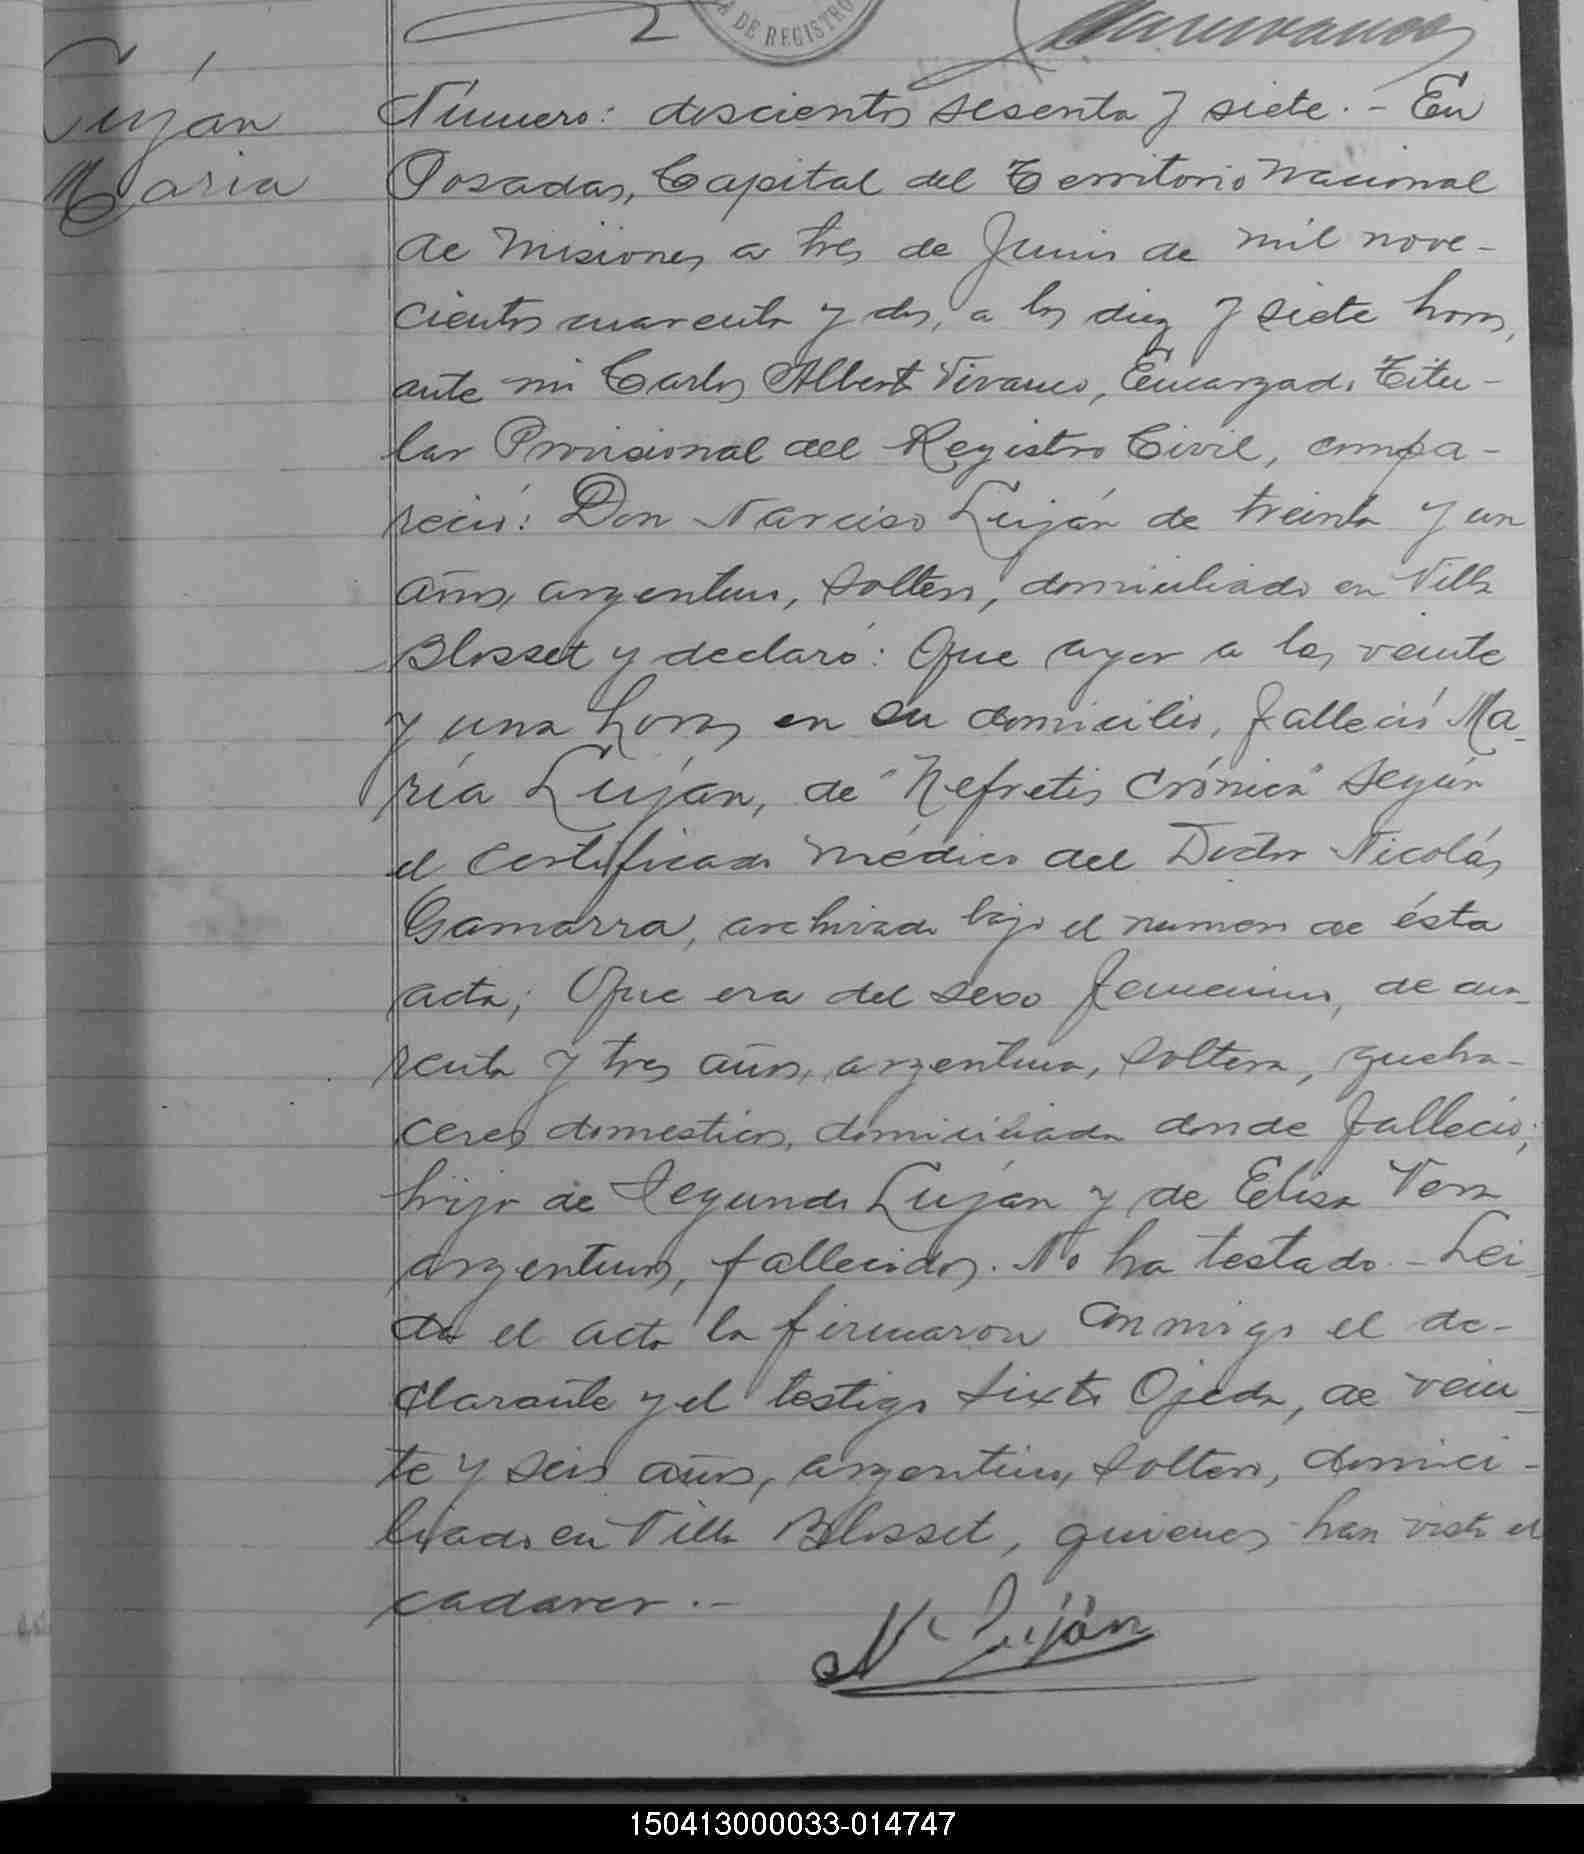 A DE REGISTRO
Luján
Maria
Número: doscientos sesenta y siete.- En
Posadas, Capital del Territorio Nacional
de Misiones a tres de Junio de mil nove-
cientos cuarenta y dos, a las diez y siete horas,
ante mi Carlos Alberto Vivanco, Encargado Titu-
lar Provisional del Registro Civil, compa-
reció: Don Narciso Luján de treinta y un
años, argentino, soltero, domiciliado en Villa
Blosset y declaró: Que ayer a las veinte
y una horas en su domicilio, falleció Ma-
ría Luján, de "Nefretis crónica" según
el certificado médico del Doctor Nicolás
Gamarra, archivado bajo el numero de ésta
acta; Que era del sexo femenino, de cua-
renta y tres años, argentina, soltera, queha-
ceres domesticos, domiciliada donde falleció;
hija de Segundo Luján y de Elisa Vera
argentinos, fallecidos. No ha testado.- Lei-
da el acta la firmaron conmigo el de-
clarante y el testigo Sixto Ojeda, de vein-
te y seis años, argentino, soltero, domici-
liado en Villa Blosset, quienes han visto el
cadaver.-
N. Luján
150413000033-014747